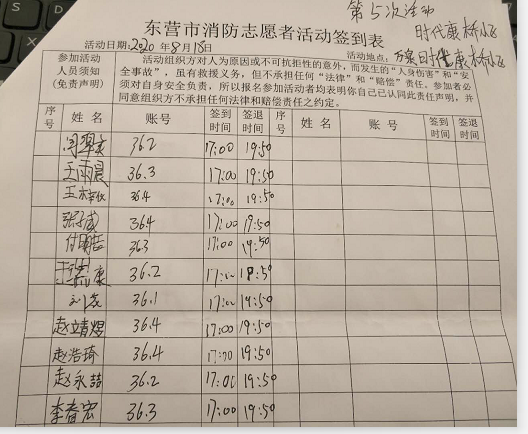 第5次活动
时代康桥小区
东营市消防志愿者活动签到表
活动日期:2020年8月18日 活动地点:万泉时代康桥小区
参加活动人员须知(免责声明)
活动组织方对人为原因或不可抗拒性的意外,而发生的“人身伤害”和“安
全事故”,虽有救援义务,但不承担任何“法律”和“赔偿”责任。参加者必
须对自身安全负责,所以报名参加活动者均表明你自己已认同此责任声明,并
同意组织方不承担任何法律和赔偿责任之约定。
序号 姓名 账号 签到时间 签退时间 序号 姓名 账号 签到时间 签退时间
36.2 17:00 19:50
王雨晨 36.3 17:00 19:50
36.4 17:00 19:50
36.4 17:00 19:50
付 36.3 17:00 19:50
康 36.2 17:00 18:50
刘 36.1 17:00 19:50
赵靖煜 36.4 17:00 19:50
赵浩琦 36.4 17:00 19:50
赵永喆 36.2 17:00 19:50
李春宏 36.3 17:00 19:50